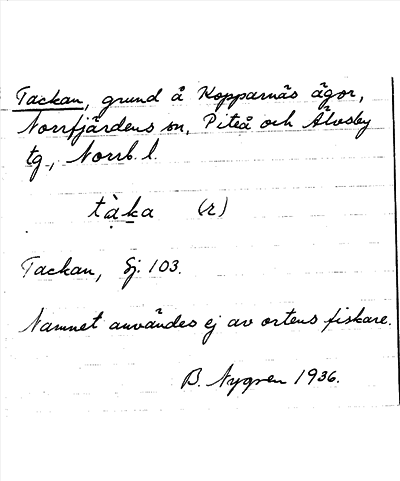 Tackan, grund å Kopparnäs ägor,
Norrfjärdens sn, Piteå och Älvsby
tg., Norrb. l.
tàka (r)
Tackan, Sj. 103.
Namnet användes ej av ortens fiskare.
B. Nygren 1936.